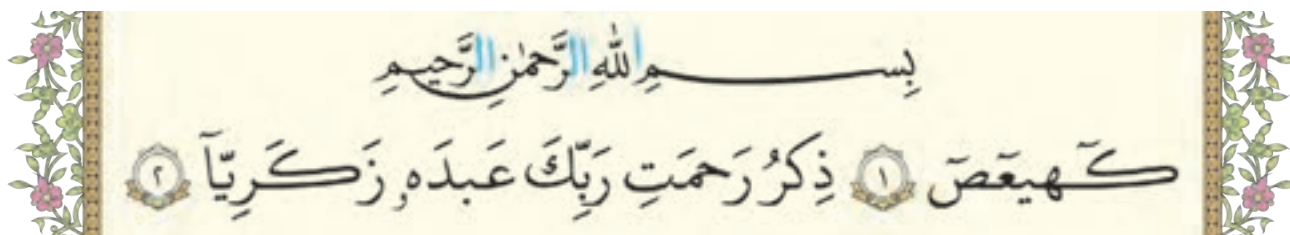 بِسمِ اللّٰهِ الرَّحمٰنِ الرَّحيمِ
كٓهيعٓصٓ ١ ذِكرُ رَحمَتِ رَبِّكَ عَبدَهُۥ زَكَرِيّآ ٢